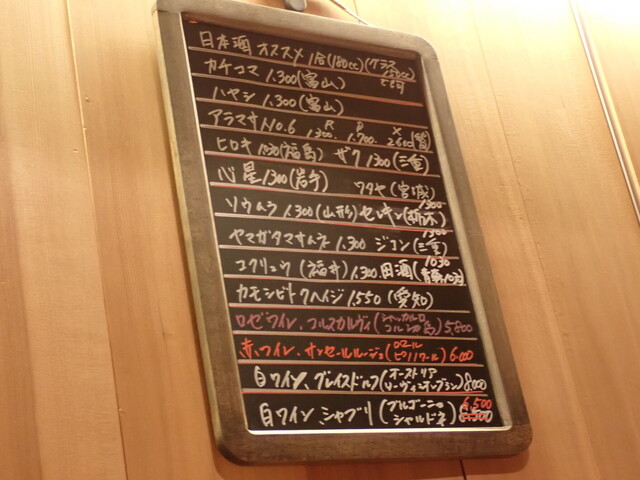 日本酒 オススメ 1合(180cc)(グラス 150cc)でも可
カチコマ 1,300(富山)
ハヤシ 1,300(富山)
アラマサNO.6 R 1,300. P 1,700. X 2,600
ヒロキ 1030(福島) ザク 1300(三重)
心星 1300(岩手) ワタヤ(宮城) 1300
ソウムラ 1,300(山形) センキン(栃木) 1300
ヤマガタマサムネ 1,300 ジコン(三重)
コクリュウ(福井) 1,300 田酒(青森) 1030
カモシビト.クヘイジ 1,550(愛知)
ロゼワイン.コルスカルヴィ( コルシカ島)5,800
赤ワイン.サンセールルージュ(ロワール ピノノワール)6,000
白ワイン.グレイスドルフ(オーストリア )8,000
白ワイン.シャブリ(ブルゴーニュ シャルドネ)6,500